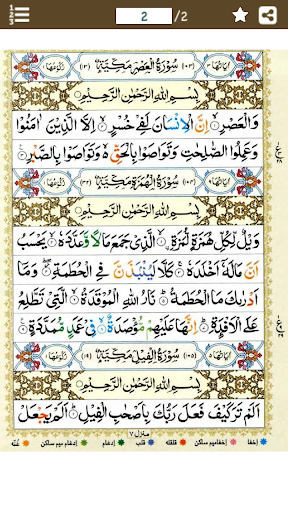 2 /2
سُوْرَةُ الْعَصْرِ مَكِّيَّةٌ
بِسْمِ اللّٰهِ الرَّحْمٰنِ الرَّحِيْمِ
وَالْعَصْرِۙ اِنَّ الْاِنْسَانَ لَفِيْ خُسْرٍۙ اِلَّا الَّذِيْنَ اٰمَنُوْا
وَعَمِلُوا الصّٰلِحٰتِ وَتَوَاصَوْا بِالْحَقِّ ۙ وَتَوَاصَوْا بِالصَّبْرِ
سُوْرَةُ الْهُمَزَةِ مَكِّيَّةٌ
بِسْمِ اللّٰهِ الرَّحْمٰنِ الرَّحِيْمِ
وَيْلٌ لِّكُلِّ هُمَزَةٍ لُّمَزَةٍۙ الَّذِيْ جَمَعَ مَالًا وَّعَدَّدَهٗۙ يَحْسَبُ
اَنَّ مَالَهٗۤ اَخْلَدَهٗۚ كَلَّا لَيُنْۢبَذَنَّ فِي الْحُطَمَةِ وَمَاۤ
اَدْرٰىكَ مَا الْحُطَمَةُؕ نَارُ اللّٰهِ الْمُوْقَدَةُۙ الَّتِيْ تَطَّلِعُ
عَلَى الْاَفْـِٕدَةِؕ اِنَّهَا عَلَيْهِمْ مُّؤْصَدَةٌۙ فِيْ عَمَدٍ مُّمَدَّدَةٍ
سُوْرَةُ الْفِيْلِ مَكِّيَّةٌ
بِسْمِ اللّٰهِ الرَّحْمٰنِ الرَّحِيْمِ
اَلَمْ تَرَ كَيْفَ فَعَلَ رَبُّكَ بِاَصْحٰبِ الْفِيْلِؕ اَلَمْ يَجْعَلْ
منزل ٧
اخفا اخفا میم ساکن قلقله قلب ادغام ادغام میم ساکن غنّه